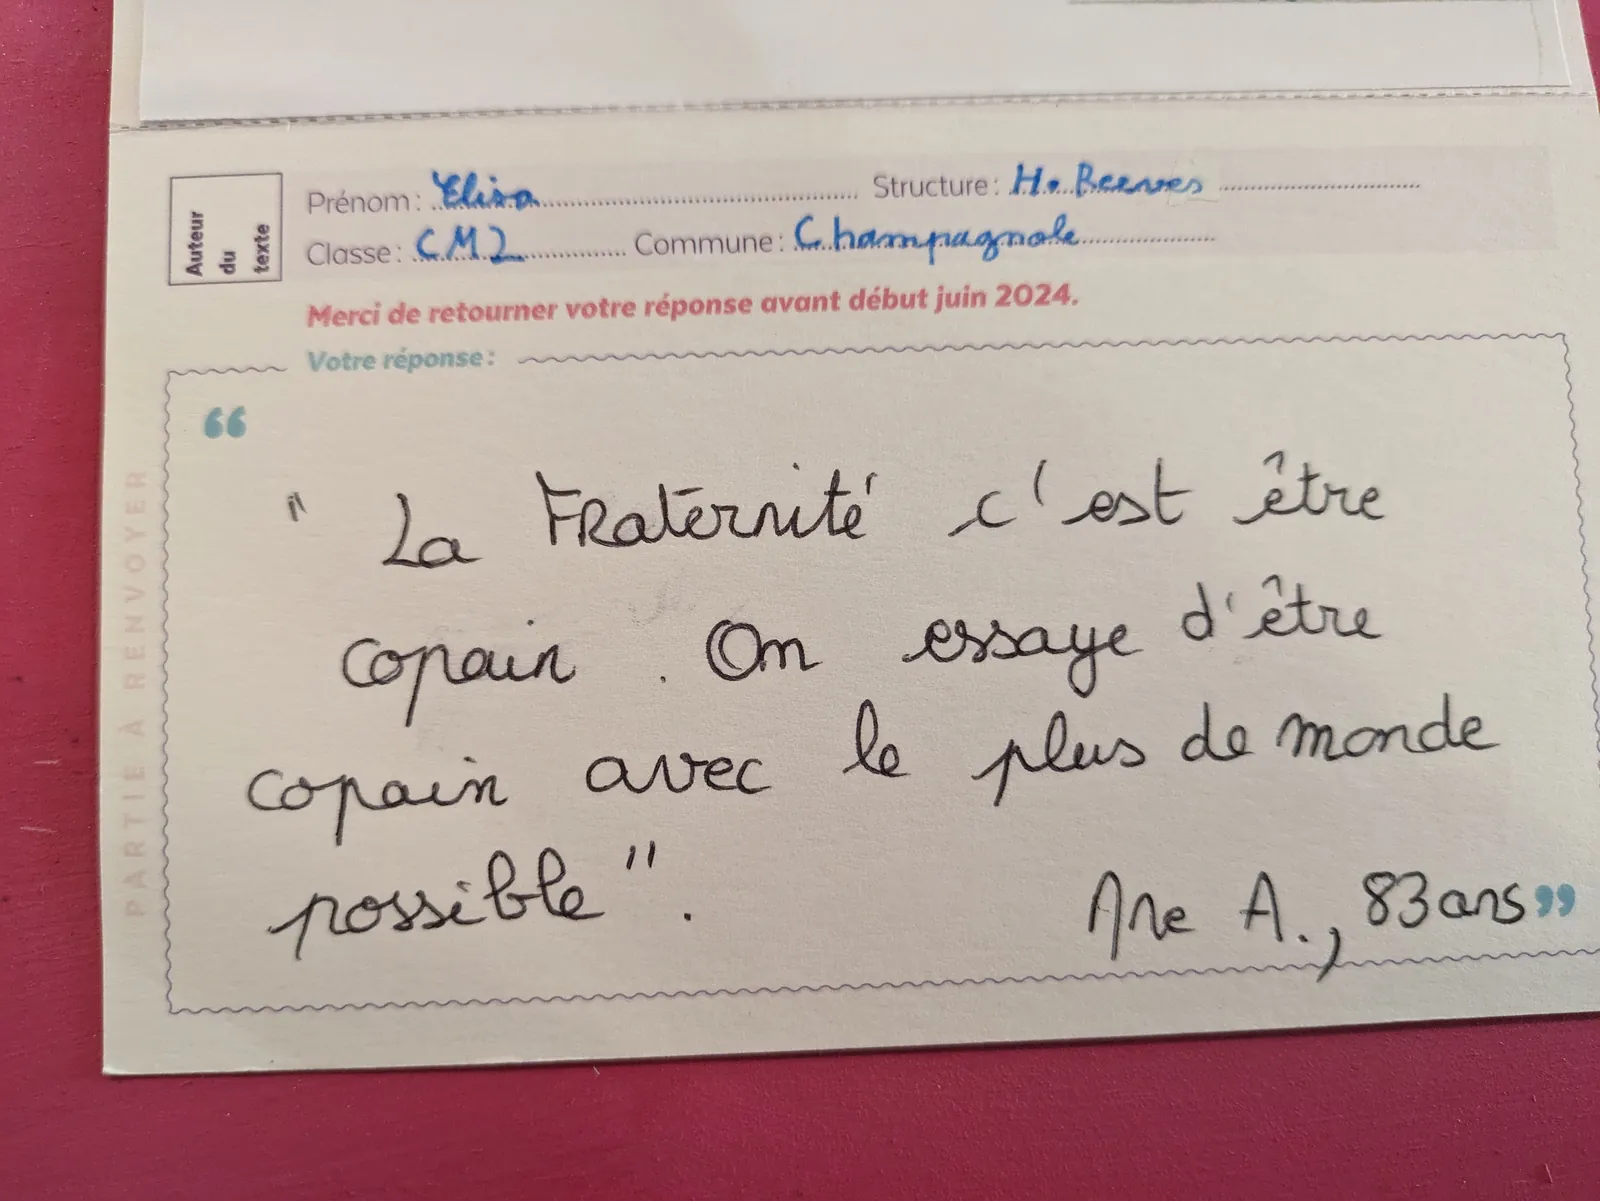 Auteur du texte
Prénom : Elisa Structure : H. Reeves
Classe : CM2 Commune : Champagnole
Merci de retourner votre réponse avant début juin 2024.
Votre réponse :
PARTIE À RENVOYER
“
" La Fraternité c'est être
copain. On essaye d'être
copain avec le plus de monde
possible ".
A., 83 ans ”